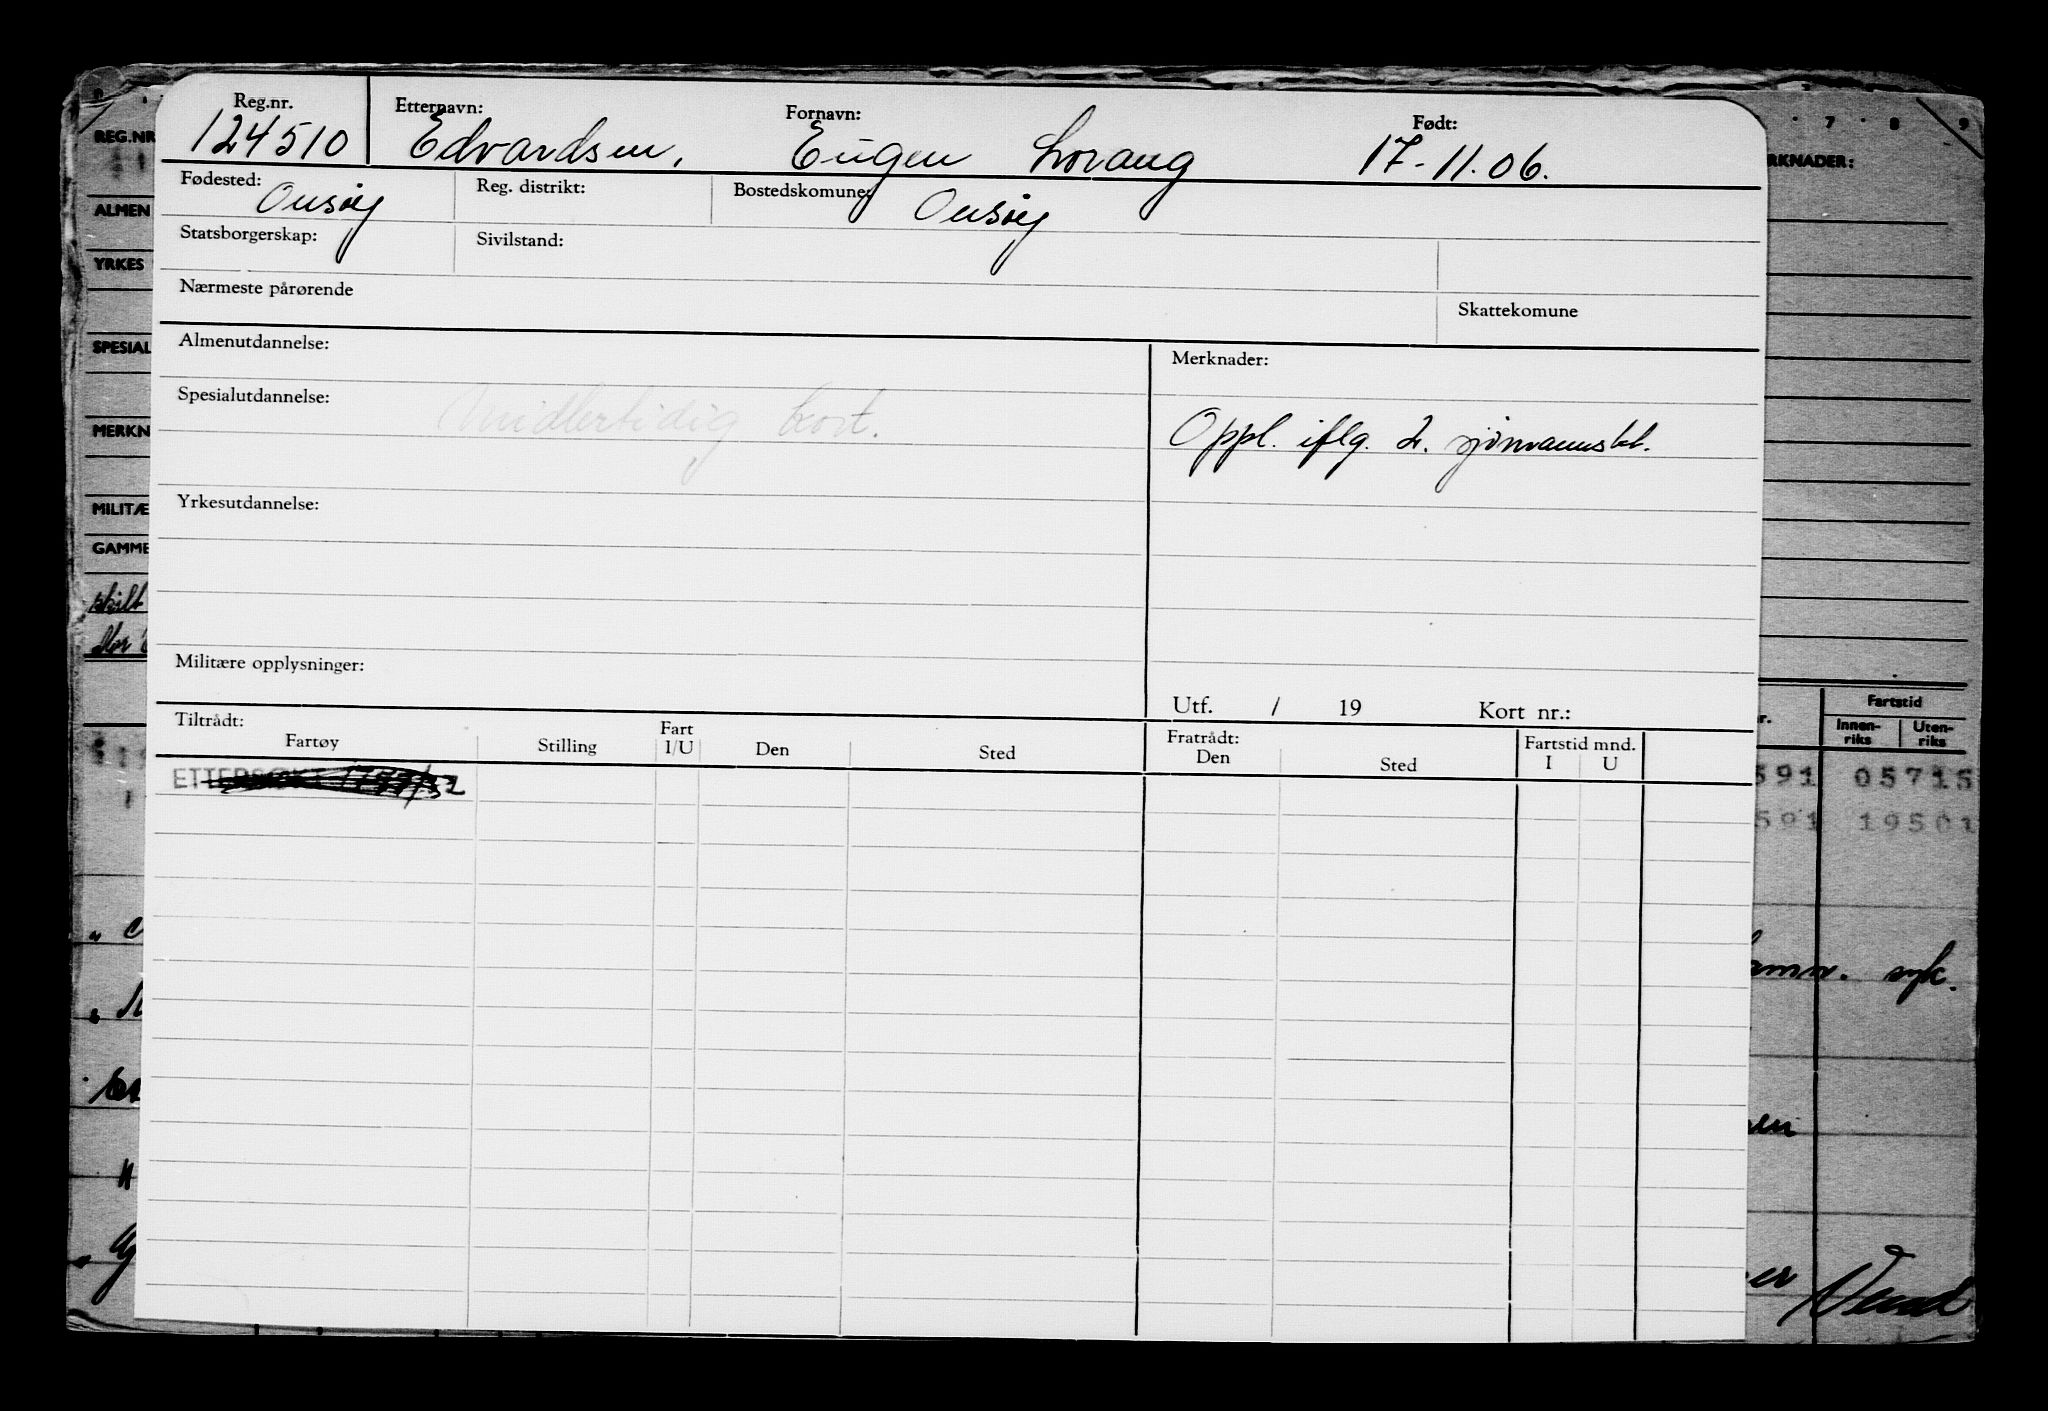 Reg.nr. Etternavn: Fornavn: Født:
124510 Edvardsen, Eugen Lorang 17-11.06.
Fødested: Reg. distrikt: Bostedskomune:
Onsøy Onsøy
Statsborgerskap: Sivilstand:
Nærmeste pårørende Skattekomune
Almenutdannelse: Merknader:
Spesialutdannelse: Midlertidig kort.
Oppl. iflg. 2. sjømannsbk.
Yrkesutdannelse:
Militære opplysninger:
Utf. / 19 Kort nr.:
Tiltrådt: Fratrådt:
Fartøy Stilling Fart I/U Den Sted Den Sted Fartstid mnd. I U
ETTERSØKT
REG.NR
ALMEN
YRKES
SPESIAL
MERKN
MILITÆ
GAMME
7 8 9
RKNADER:
Fartstid
Innen-riks Uten-riks
591 05715
591 19501
syk.